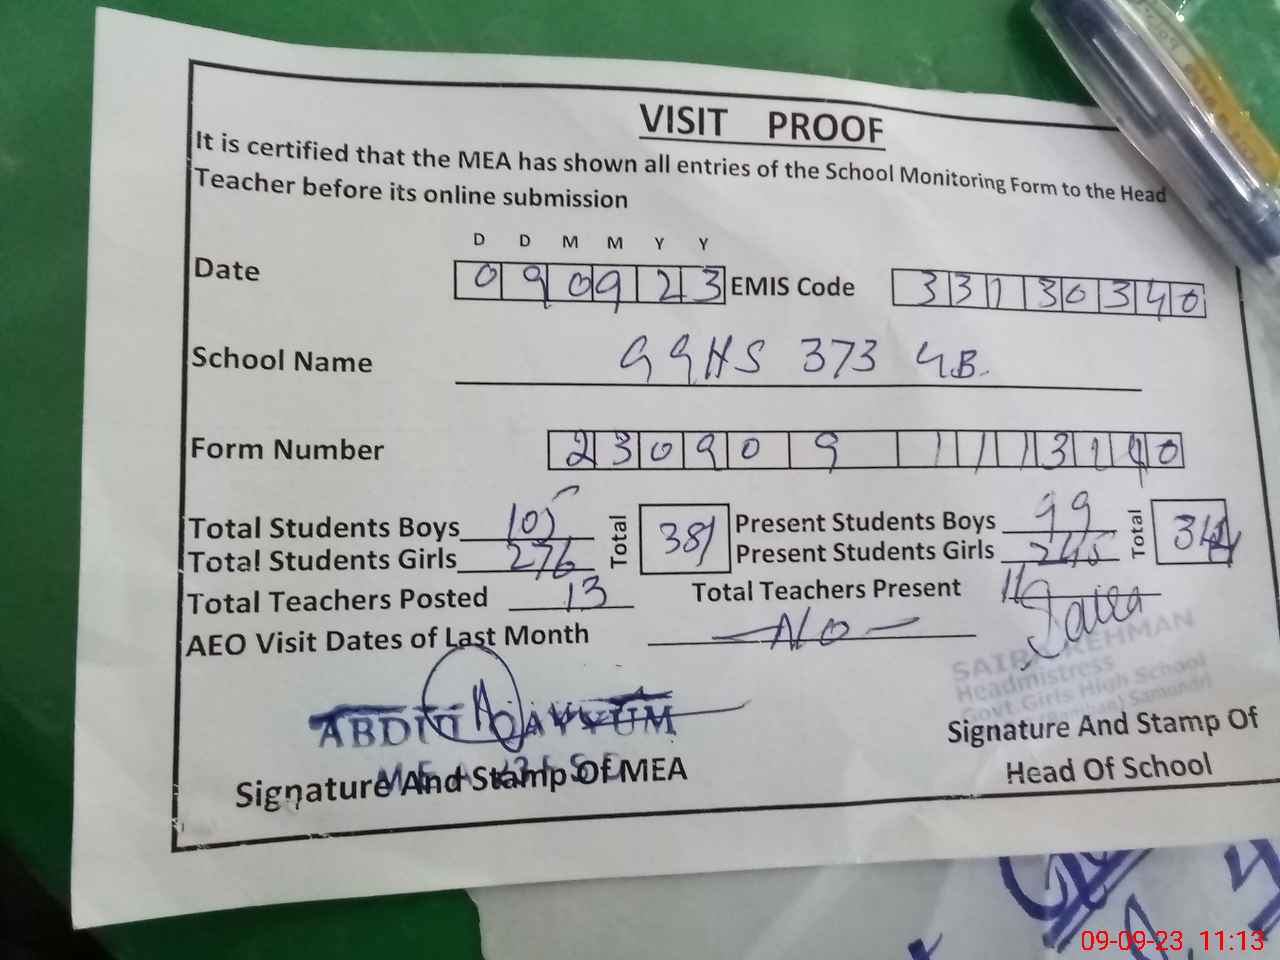 VISIT PROOF
It is certified that the MEA has shown all entries of the School Monitoring Form to the Head
Teacher before its online submission
D D M M Y Y
Date 090923 EMIS Code 33130340
School Name GGHS 373 GB.
Form Number 230909
Total Students Boys 105 Total 381 Present Students Boys 99 Total 344
Total Students Girls 276 Present Students Girls 245
Total Teachers Posted 13 Total Teachers Present
AEO Visit Dates of Last Month NO
SAIRA REHMAN
Headmistress
Govt. Girls High School
Samundri
ABDUL QAYYUM
MEA
Signature And Stamp Of MEA
Signature And Stamp Of
Head Of School
09-09-23 11:13